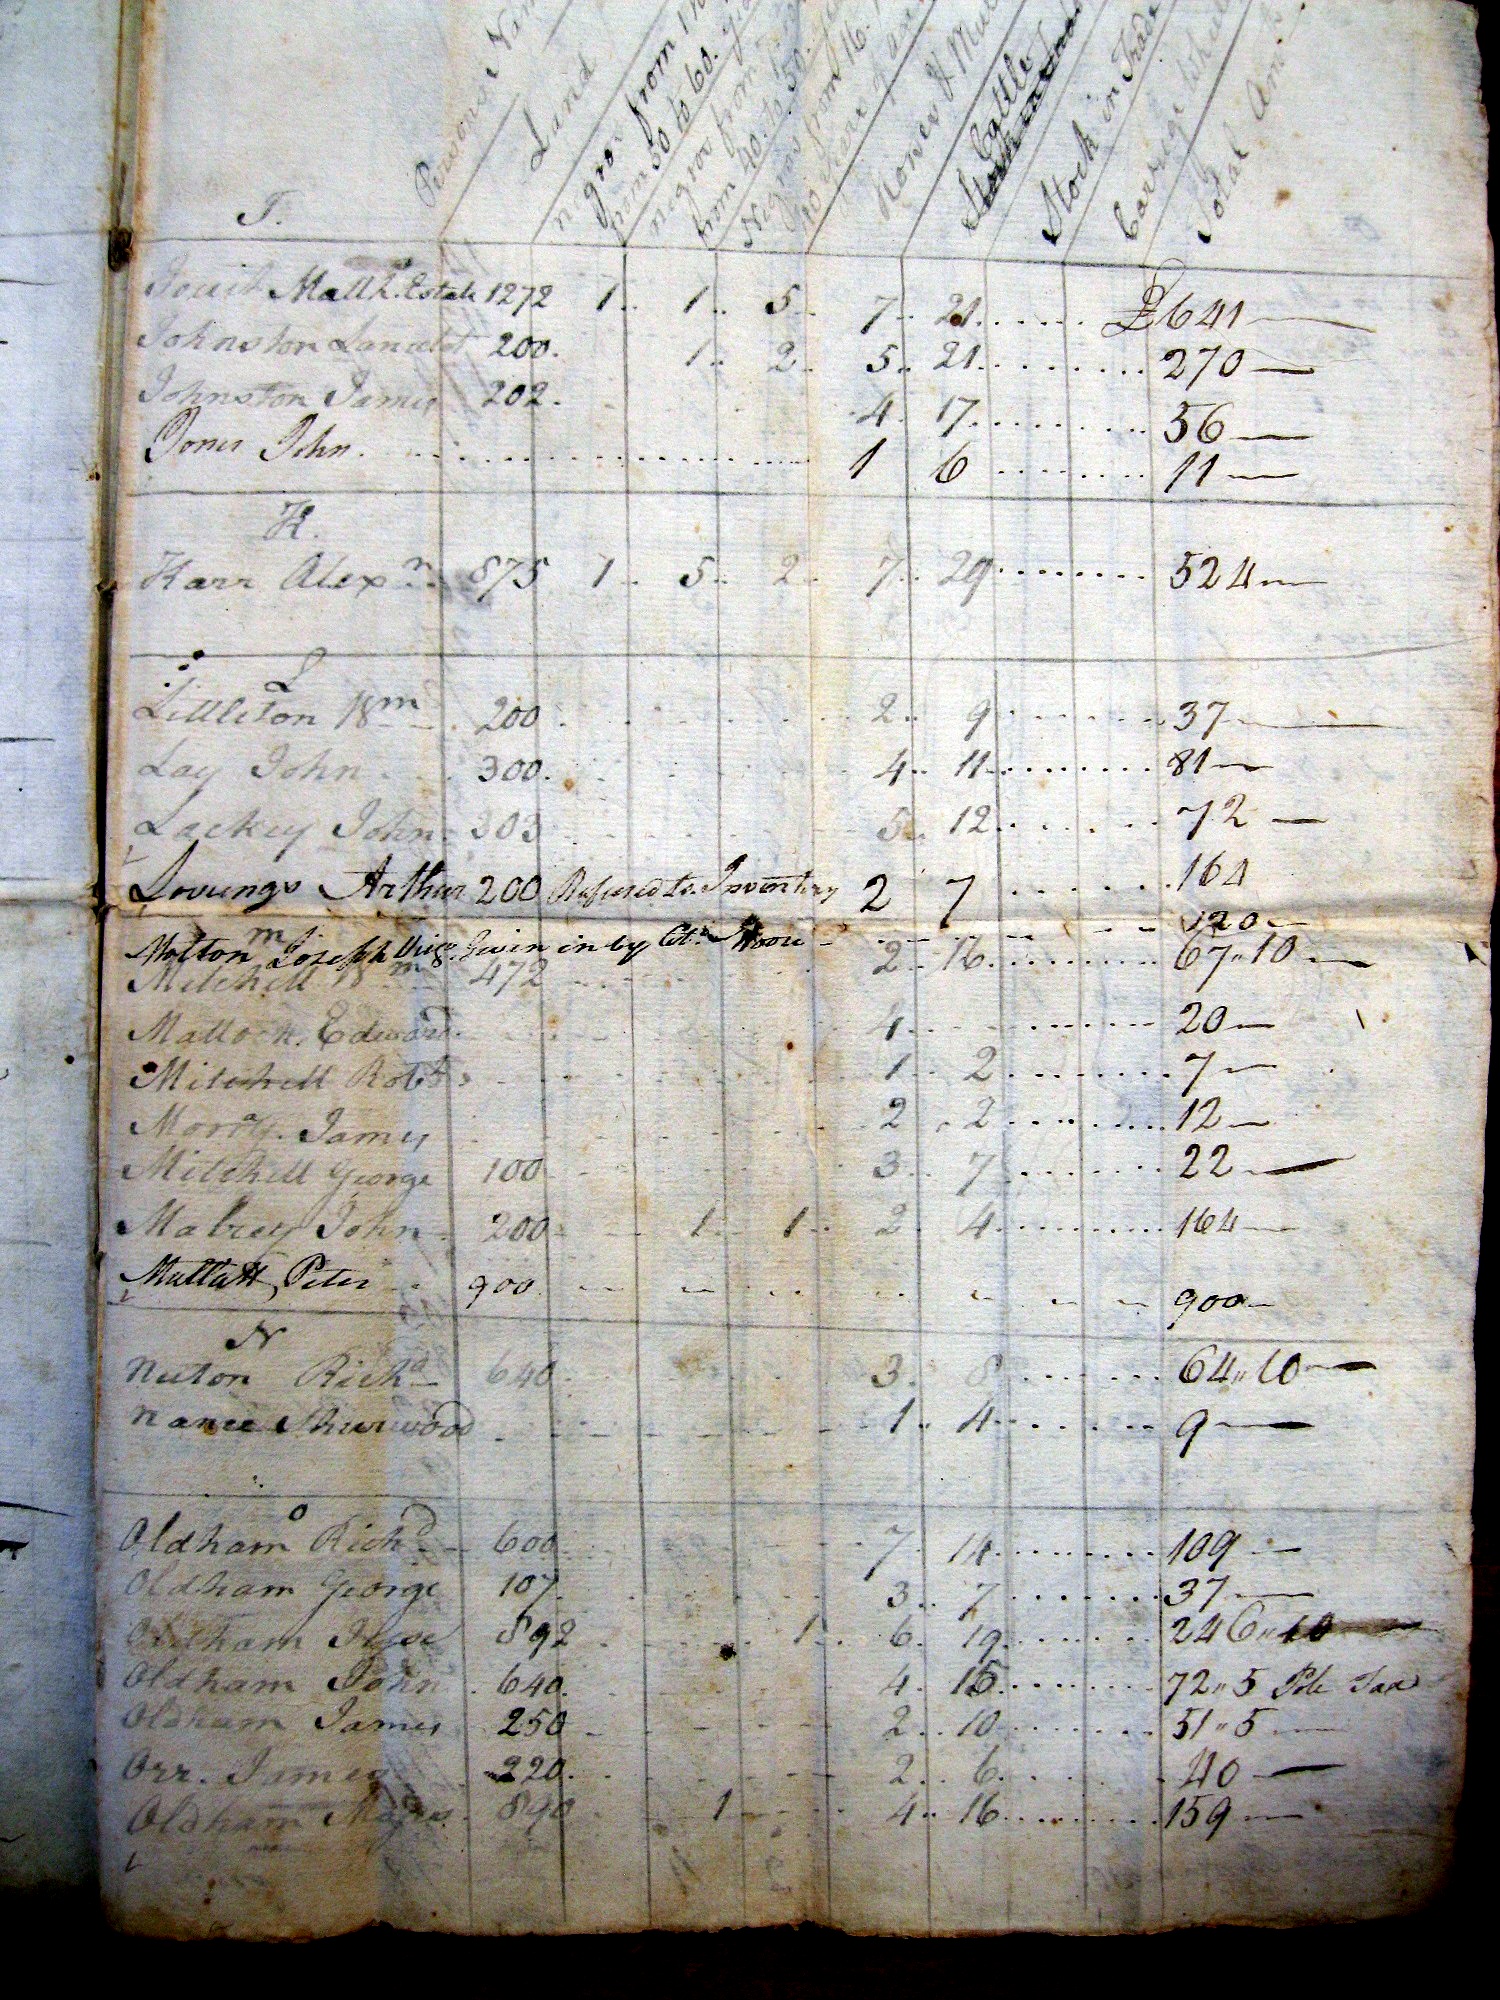 Persons Nam
Land
negros from 1
from 50 to 60.
negros from
from 40. to 50
Negros from 16.
40 years
Horses & Mul
Cattle
Stock in Trade
Carriage Wheel
Total Am
J.
Matth. Estate 1272 1.. 1.. 5.. 7.. 21...... £641—
Johnston Lancelot 200. 1.. 2.. 5.. 21........ 270—
Johnston James 202. 4 17......... 56—
Jones John. .................... 1 6 ........ 11—
K.
Karr Alexr. 875 1.. 5.. 2.. 7.. 29......... 524—
L
Littleton Wm 200. 2.. 9....... 37—
Lay John 300. 4.. 11......... 81—
Lackey John 303 5.. 12....... 72—
Lovings Arthur 200 Refused to Inventory 2 7 ....... 164
m
Molton Joseph Given in by Moore - 120—
Mitchell Wm 472 2.. 16......... 67,,10—
Mallock. Edward. 4.......... 20—
Mitchell Robt. 1.. 2......... 7—
James 2.. 2......... 12—
Mitchell George 100 3.. 7....... 22—
Mabrey John 200 1.. 1.. 2.. 4......... 164—
Peter 900 900—
N
Neuton Richd 640. 3.. 8....... 64,,10—
Nance Shurwood 1.. 4....... 9—
O
Oldham Richd 600 7.. 14......... 109—
Oldham George 107 3.. 7....... 37—
Oldham 892 1.. 6.. 19....... 246,,10
Oldham John 640. 4.. 15......... 72,,5 Pole Tax
Oldham James 250 2.. 10....... 51,,5—
Orr. James 220. 2.. 6....... 40—
Oldham 890 1 4.. 16......... 159—